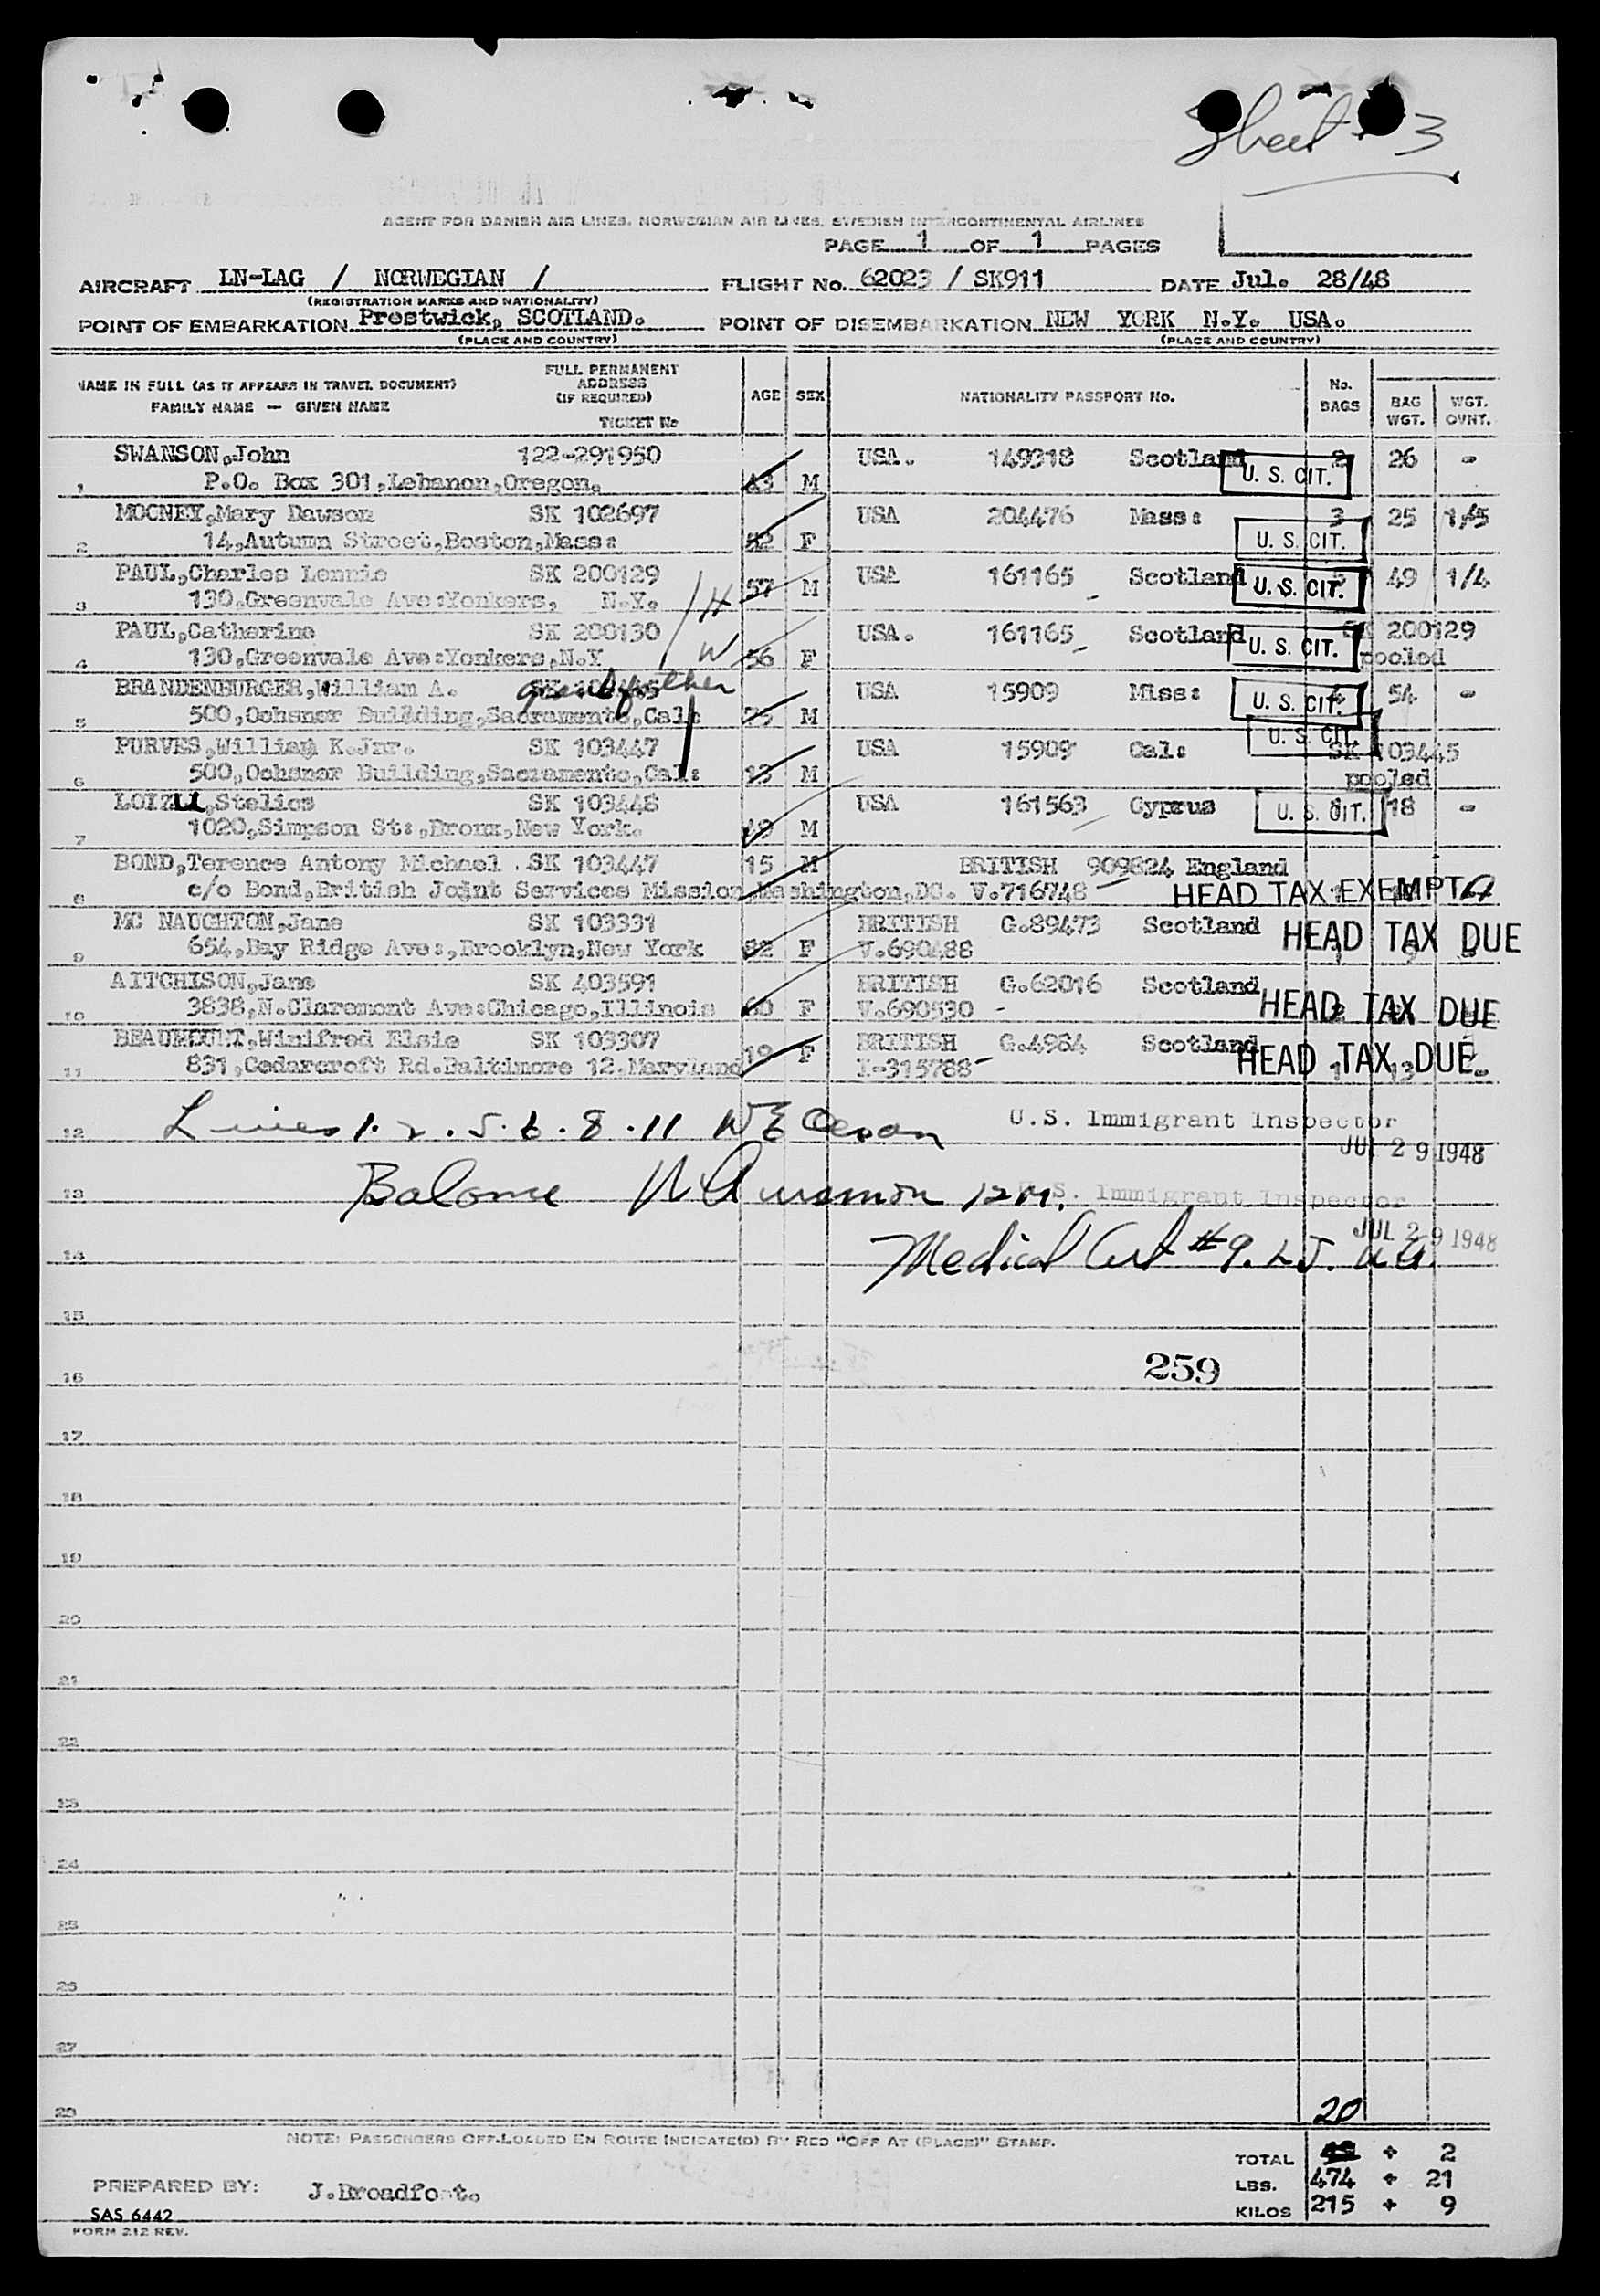 Sheet 3
AGENT FOR DANISH AIR LINES, NORWEGIAN AIR LINES, SWEDISH INTERCONTINENTAL AIRLINES
PAGE 1 OF 1 PAGES
AIRCRAFT LN-LAG / NORWEGIAN / FLIGHT No. 62023 / SK911 DATE Jul. 28/48
(REGISTRATION MARKS AND NATIONALITY)
POINT OF EMBARKATION Prestwick, SCOTLAND. POINT OF DISEMBARKATION NEW YORK N.Y. USA.
(PLACE AND COUNTRY) (PLACE AND COUNTRY)
NAME IN FULL (AS IT APPEARS IN TRAVEL DOCUMENT) FAMILY NAME — GIVEN NAME
FULL PERMANENT ADDRESS (IF REQUIRED) TICKET No
AGE SEX NATIONALITY PASSPORT No. No. BAGS BAG WGT. WGT. OVHT.
SWANSON,John 122-291950 USA. 149318 Scotland 2 26 -
1 P.O. Box 301,Lebanon,Oregon. M U. S. CIT.
MOONEY,Mary Dawson SK 102697 USA 204476 Mass: 3 25 1/5
2 14,Autumn Street,Boston,Mass: 52 F U. S. CIT.
PAUL,Charles Lennie SK 200129 USA 161165 Scotland 49 1/4
3 130,Greenvale Ave:Yonkers, N.Y. H 57 M U. S. CIT.
PAUL,Catherine SK 200130 USA. 161165 Scotland SK 200129
4 130,Greenvale Ave:Yonkers,N.Y W 56 F U. S. CIT. pooled
BRANDENBURGER,William A. grandfather USA 15909 Miss: 54 -
5 500,Ochsner Building,Sacramento,Cal: 75 M U. S. CIT.
PURVES,William K.Jnr. SK 103447 USA 15909 Cal: U. S. CIT. SK 103445
6 500,Ochsner Building,Sacramento,Cal: 13 M pooled
LOIZU,Stelios SK 103448 USA 161563 Cyprus 1 18 -
7 1020,Simpson St:,Bronx,New York. 19 M U. S. CIT.
BOND,Terence Antony Michael SK 103447 15 M BRITISH 909824 England
8 c/o Bond,British Joint Services Mission,Washington,DC. V.716748 HEAD TAX EXEMPT
MC NAUGHTON,Jane SK 103331 BRITISH G.89473 Scotland HEAD TAX DUE
9 654,Bay Ridge Ave:,Brooklyn,New York F V.690488
AITCHISON,Jane SK 403591 BRITISH G.62016 Scotland
10 3838,N.Claremont Ave:Chicago,Illinois 60 F V.690530 HEAD TAX DUE
BEAUMOUNT,Winifred Elsie SK 103307 19 F BRITISH G.4984 Scotland
11 831,Cedarcroft Rd.Baltimore 12.Maryland I-315788 HEAD TAX DUE 1 13 -
12 Lines 1. 2. 5. 6. 8. 11 U.S. Immigrant Inspector
JUL 29 1948
13 Balance U.S. Immigrant Inspector
JUL 29 1948
14 Medical Cert #9.
15
259
16
17
18
19
20
21
22
23
24
25
26
27
28
20
NOTE: PASSENGERS OFF-LOADED EN ROUTE INDICATE(D) BY RED "OFF AT (PLACE)" STAMP.
TOTAL + 2
LBS. 474 + 21
PREPARED BY: J.Broadfoot.
KILOS 215 + 9
SAS 6442
FORM 212 REV.